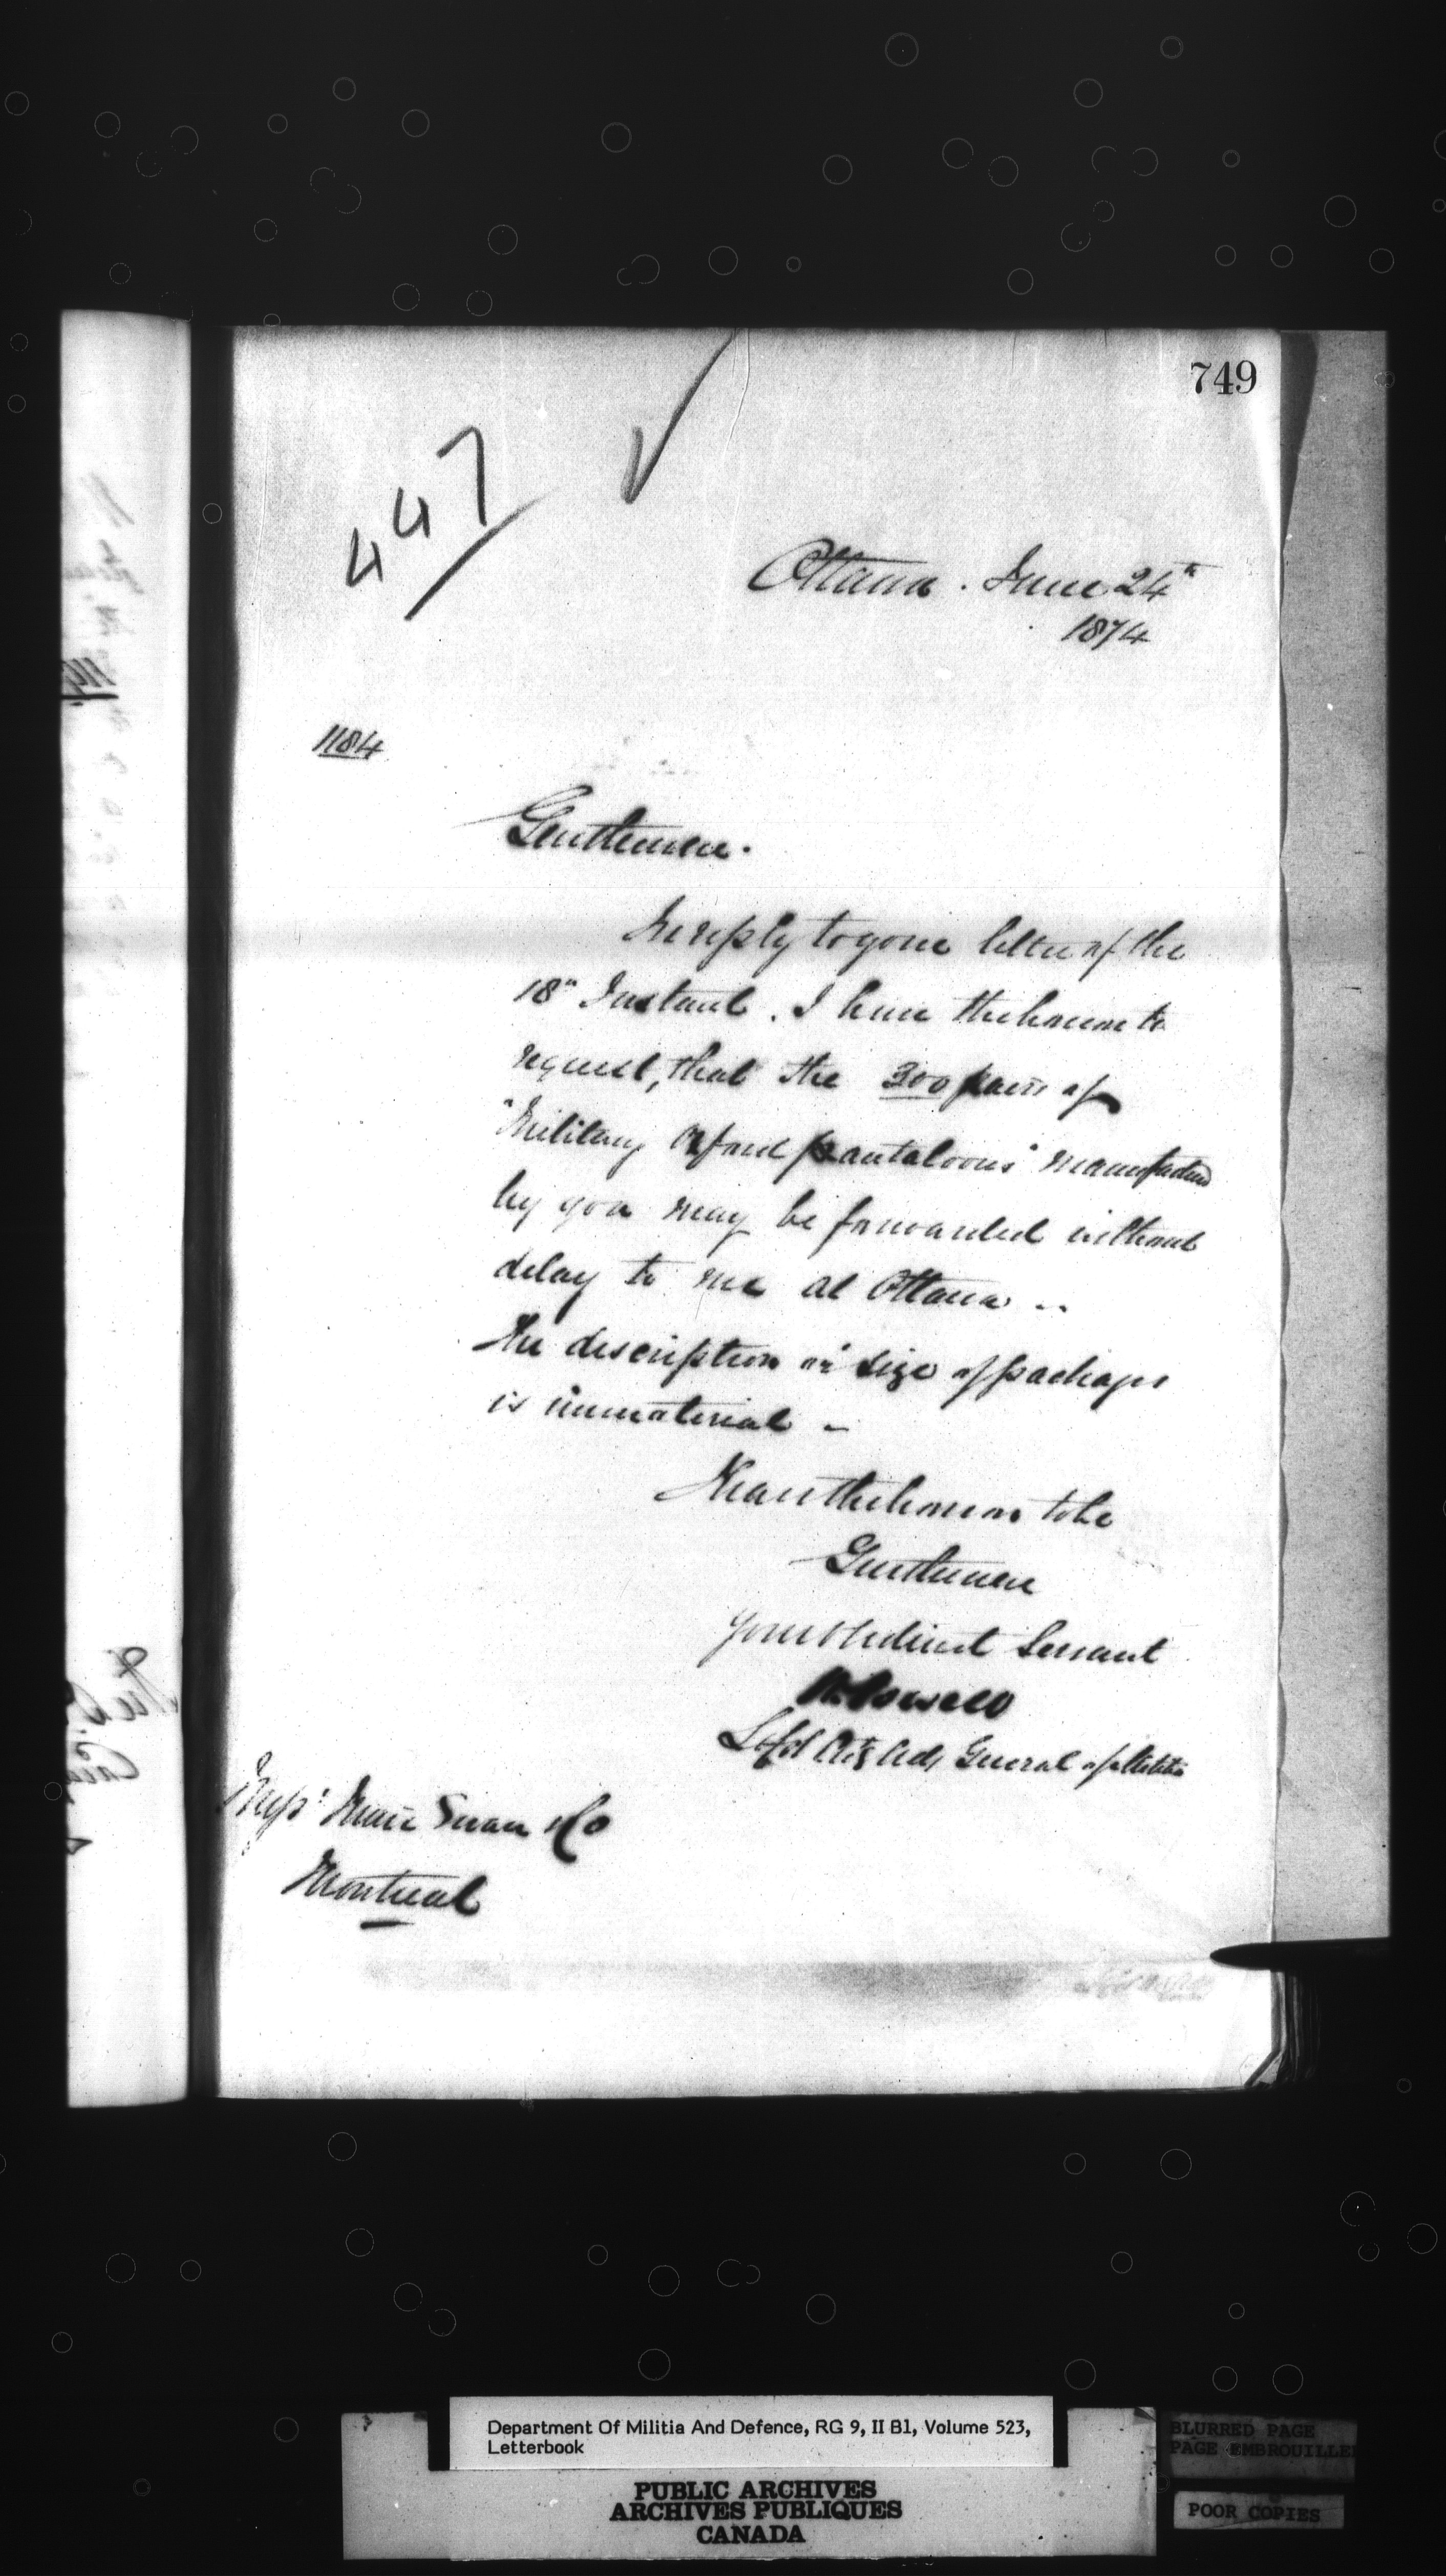 749
447
Ottawa. June 24th
1874
1184
Gentlemen.
In reply to your letter of the
18th Instant. I have the honor to
request, that the 300 pairs of
"Military Oxford pantaloons" manufactured
by you may be forwarded without
delay to me at Ottawa --
The description or size of packages
is immaterial -
I have the honor to be
Gentlemen
Your obedient Servant
W. Powell
Lt Col Actg Adj General of Militia
Messrs Muir Ewan & Co
Montreal
Department Of Militia And Defence, RG 9, II B1, Volume 523,
Letterbook
PUBLIC ARCHIVES
ARCHIVES PUBLIQUES
CANADA
BLURRED PAGE
PAGE EMBROUILLEE
POOR COPIES